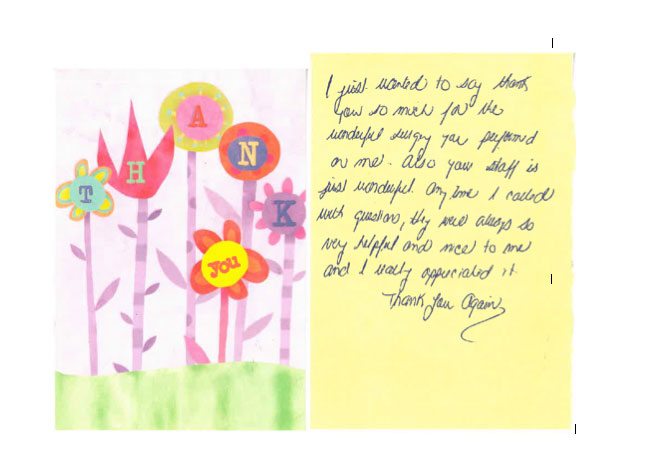 THANK
you
I just wanted to say thank
you so much for the
wonderful surgery you performed
on me. Also your staff is
just wonderful. Any time I called
with questions, they were always so
very helpful and nice to me
and I really appreciated it.
Thank You Again